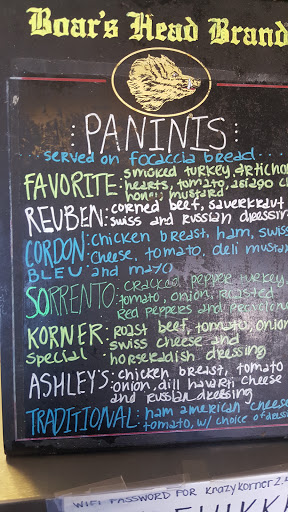 Boar's Head Brand
PANINIS
served on focaccia bread
FAVORITE: smoked turkey, artichok
hearts, tomato, asiago ch
honey mustard
REUBEN: corned beef, sauerkraut
swiss and russian dressing
CORDON BLEU: chicken breast, ham, swiss
cheese, tomato, deli mustard
and mayo
SORRENTO: cracked pepper turkey,
tomato, onion, roasted
red peppers and provolone
KORNER Special: roast beef, tomato, onion
swiss cheese and
horseradish dressing
ASHLEY'S: chicken breast, tomato
onion, dill havarti cheese
and russian dressing
TRADITIONAL: ham american cheese
tomato, w/ choice of dressi
WIFI PASSWORD FOR Krazykorner2.4